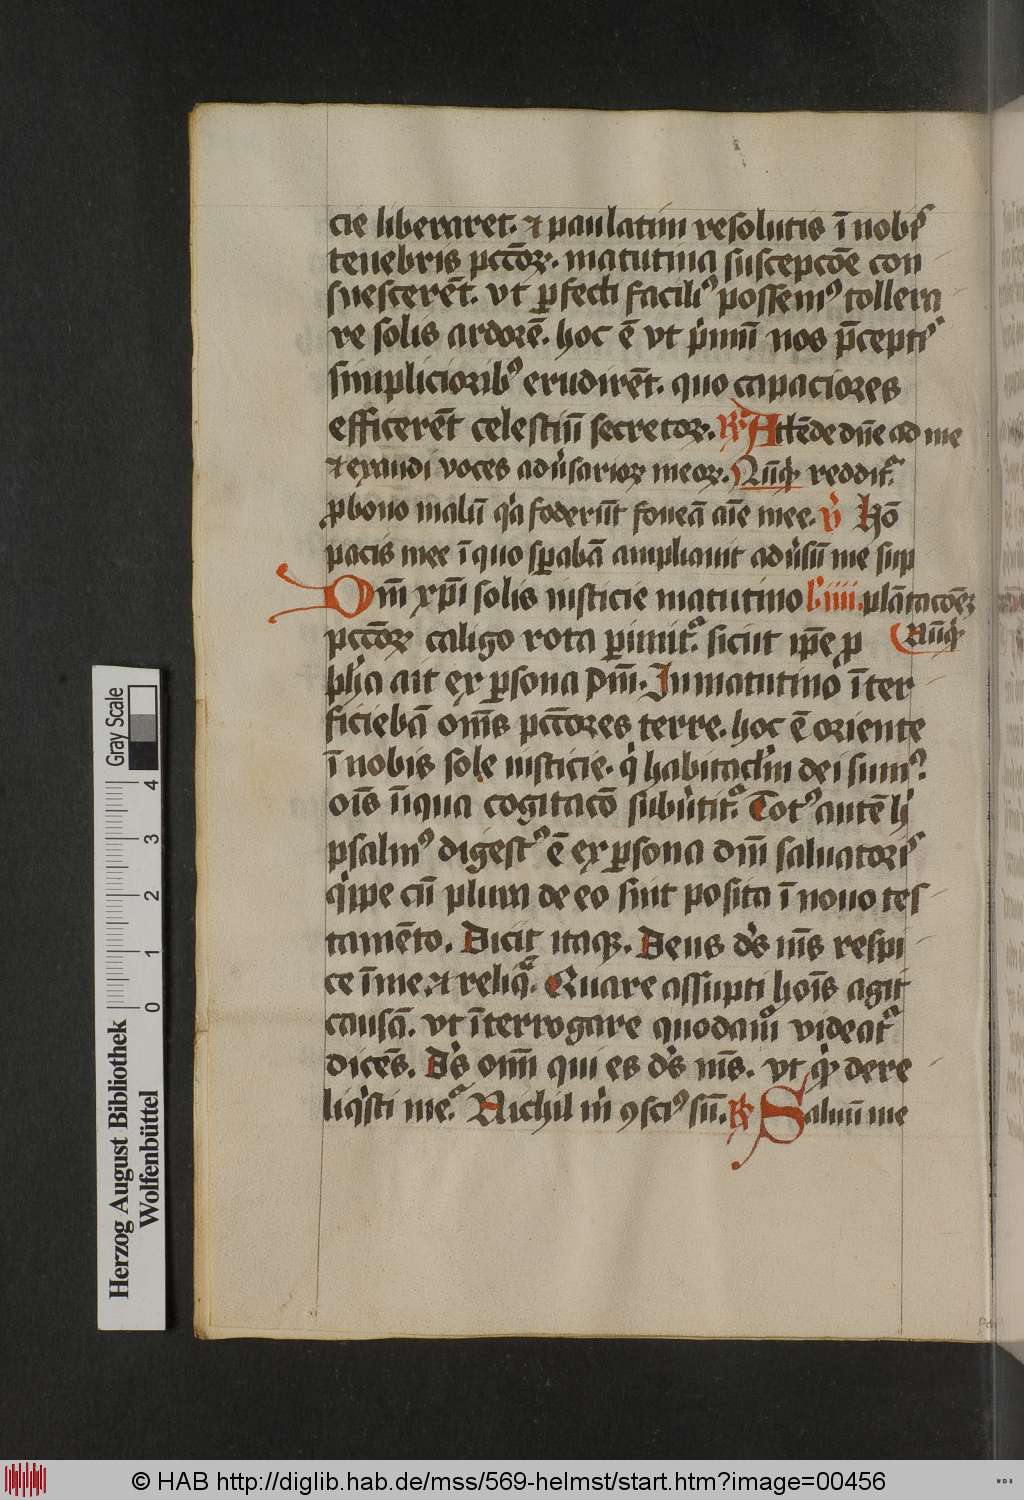 cie liberaret. ⁊ paulatim resolutis ī nobꝭ
tenebris pctōꝝ. matutina suscepcōe con
suescerēt. vt ꝑfecti faciliꝰ possemꝰ tollera
re solis ardorē. hoc ē vt pͥmū nos p̄ceptꝭ
simplicioribꝰ erudirēt. quo capaciores
efficerēt celestiū secretoꝝ. R̷ Attēde dn̄e ad me
⁊ exaudi voces adͥsarioꝝ meoꝝ. Nūqͥd redditᷣ
ꝓ bono malū qͥa foderūt foueā aīe mee. v̓ Hō
pacis mee ī quo sꝑabā ampliauit adͥsū me sup
Dom̄ xp̄i solis iusticie matutino L' iiii. plātacōeꝫ
pctōꝝ caligo tota ꝑimitᷣ. sicut ip̄e ꝓ Nūqͥd
pħa ait ex ꝑsona Dn̄i. In matutino īter
ficiebā om̄s pctōres terre. hoc ē oriente
ī nobis sole iusticie. qͥ habitacl̓m dei sumꝰ.
oīs īiqua cogitacō subͥtitᷣ. Totꝰ autē hͥ
psalmꝰ digestꝰ ē ex ꝑsona dn̄i saluatorꝭ
qͥppe cū plura de eo sint posita ī nouo tes
tamēto. Dicit itaqꝫ. Deus d̓s m̄s respi
ce ī me. ⁊ reliqͣ. Quare assūpti hoīs agit
causā. vt īterrogare quodāmͦ videatᷣ
dicēs. D̓s om̄ qui es d̓s m̄s. vt qͥd dere
liqͥsti me. Nichil m̓ ꝯsciꝰ sū. R̷ Saluū me
Gray Scale
4
3
2
1
0
Herzog August Bibliothek
Wolfenbüttel
© HAB http://diglib.hab.de/mss/569-helmst/start.htm?image=00456